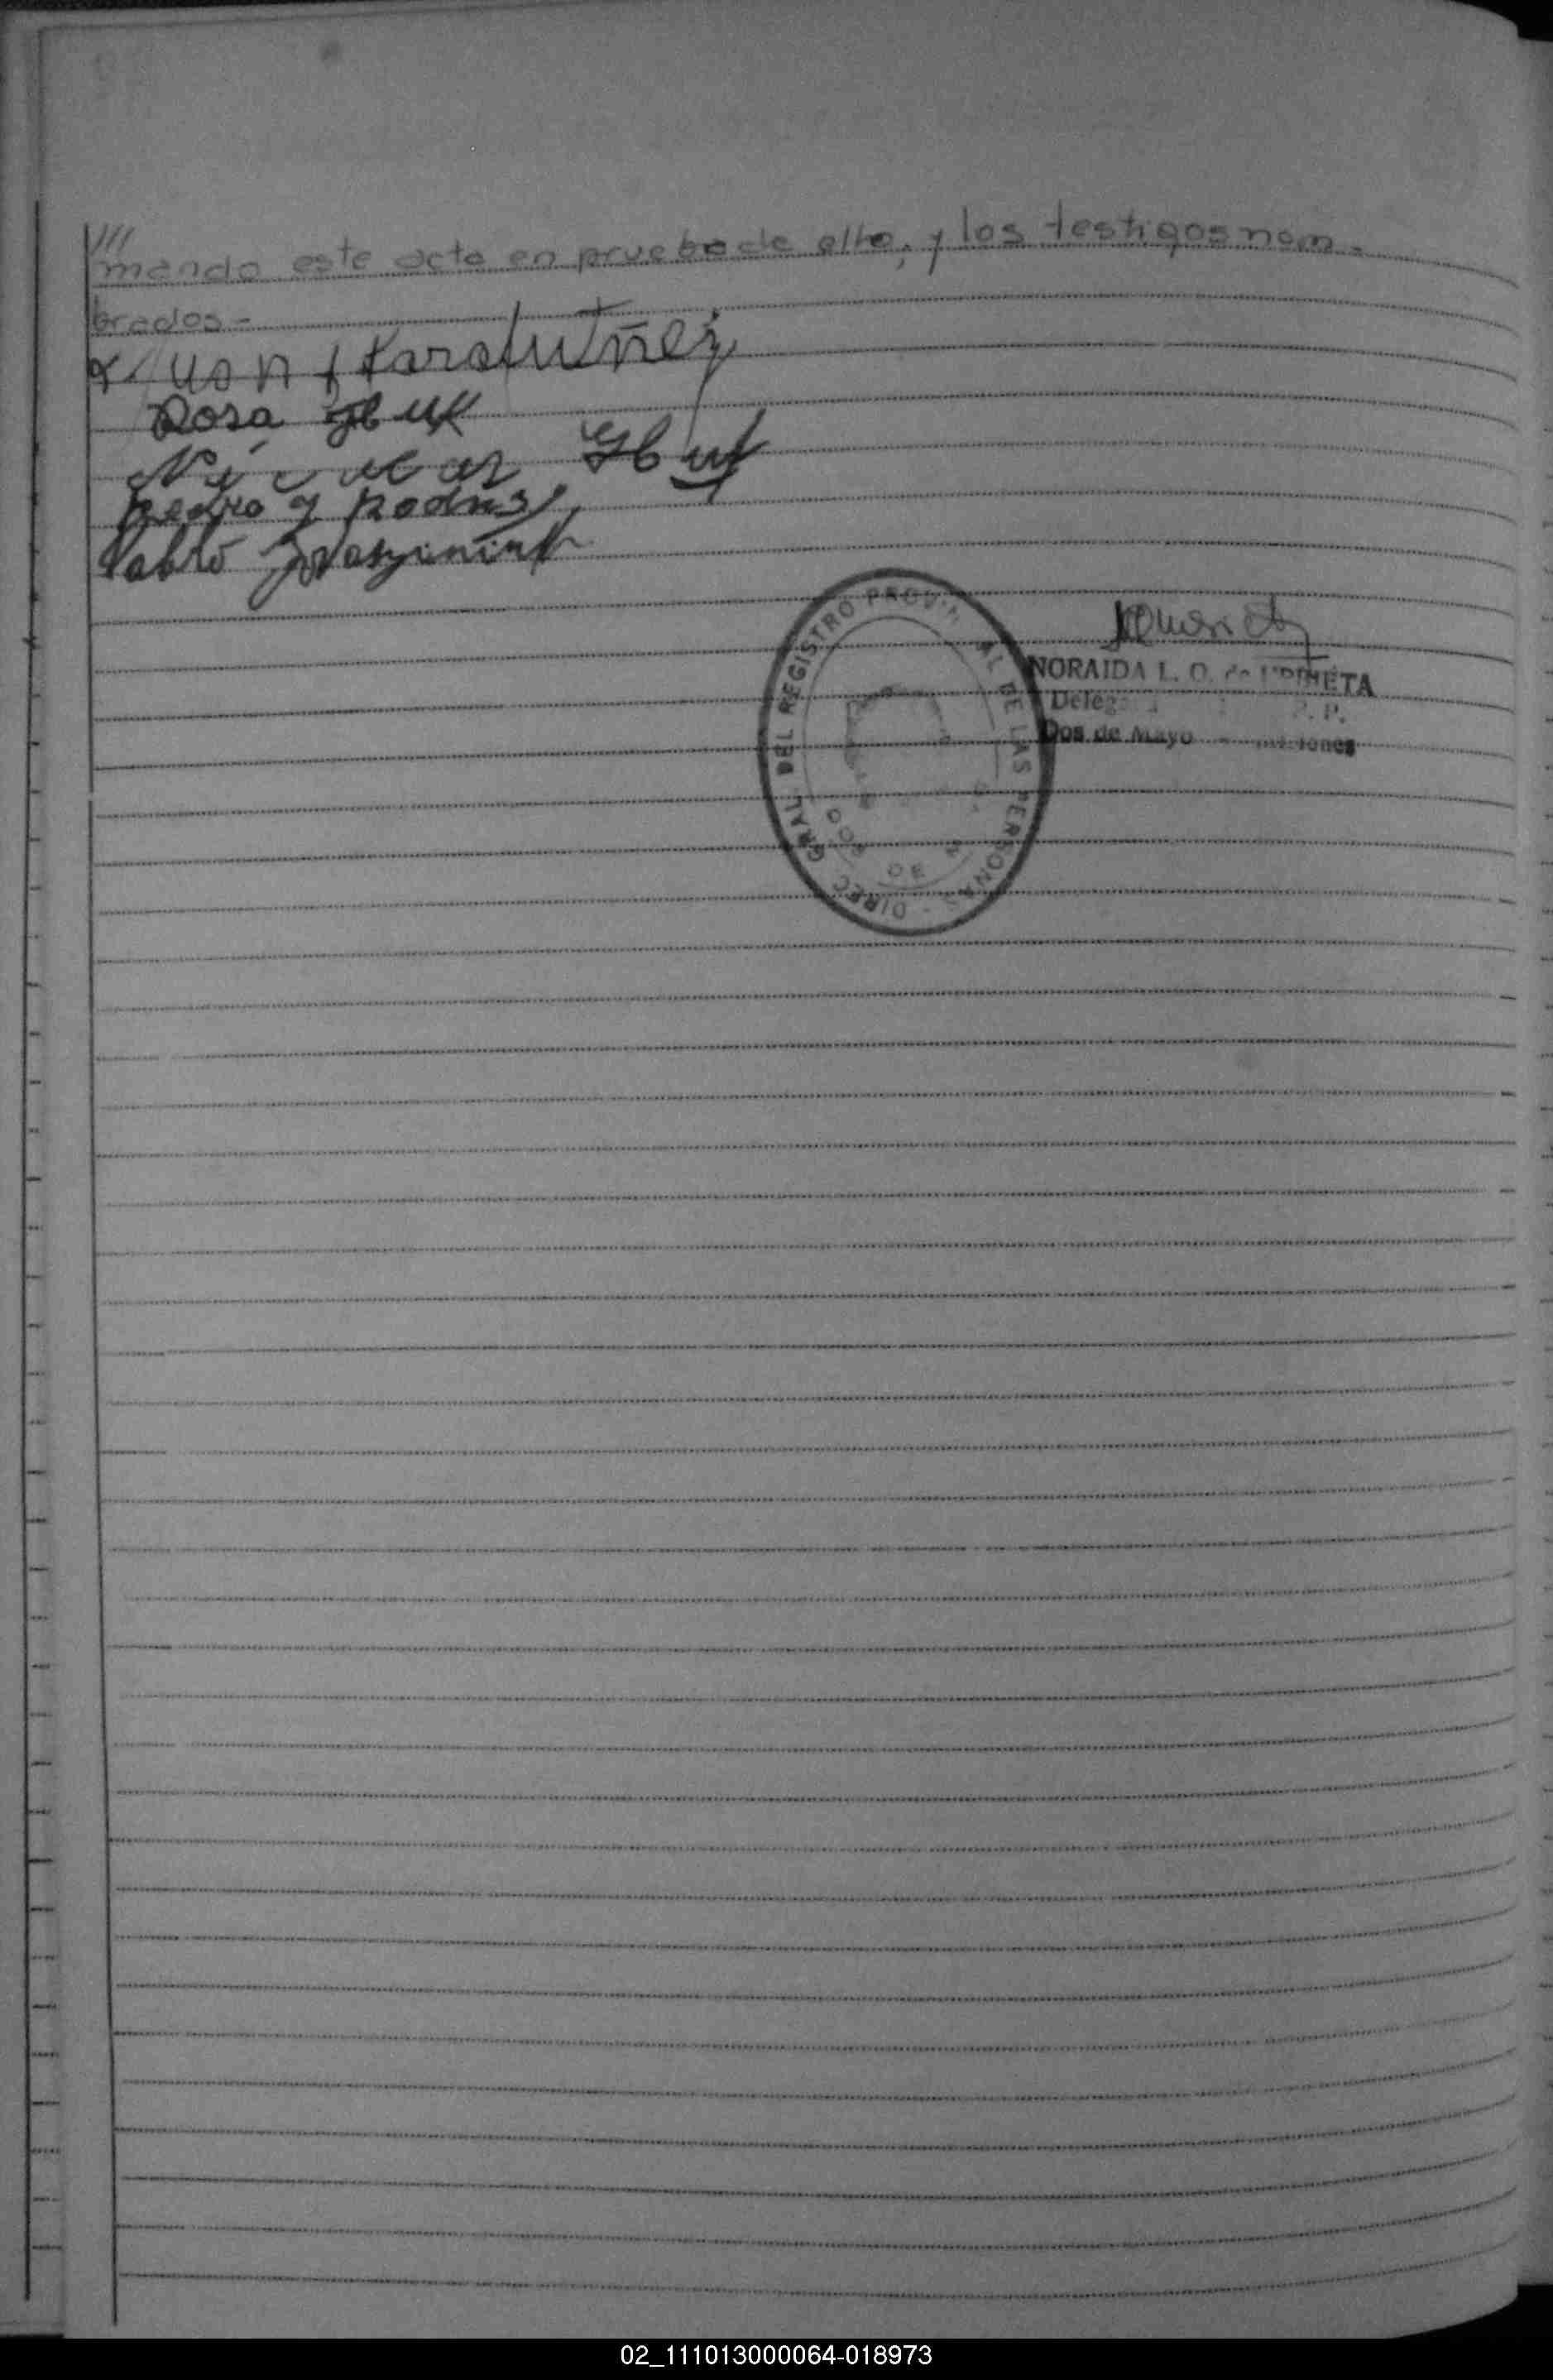 ///
mando este acta en prueba de ello, y los testigos nom-
brados-
Juan
Rosa Huk
Nicolas Huk
Pedro
Pablo
DIREC GRAL. DEL REGISTRO PROVINCIAL DE LAS PERSONAS -
DOS DE
NORAIDA L. O. de
Dos de Mayo - Misiones
02_111013000064-018973